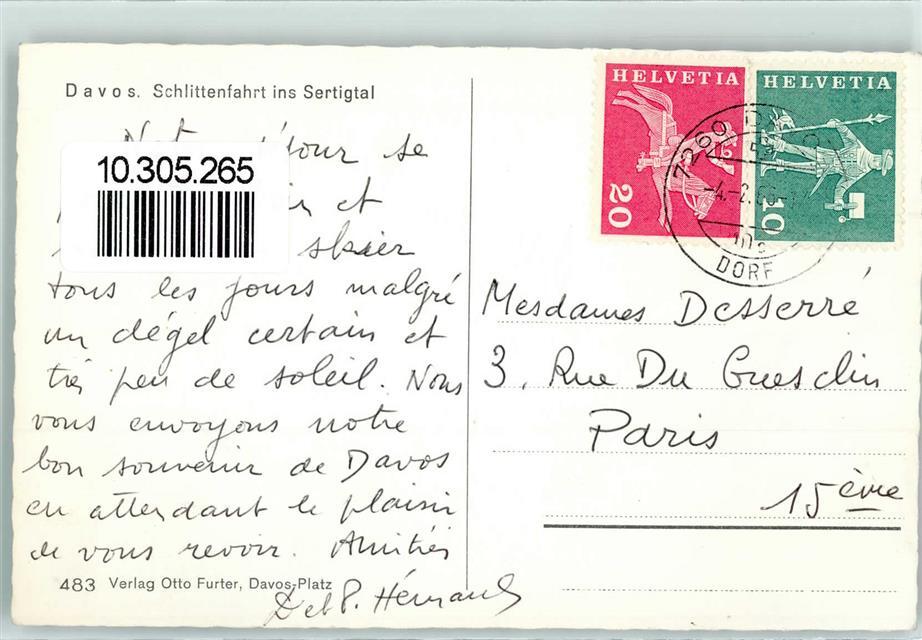 Davos. Schlittenfahrt ins Sertigtal
séjour se
10.305.265
et
skier
tous les jours malgré
un dégel certain et
très peu de soleil. Nous
vous envoyons notre
bon souvenir de Davos
en attendant le plaisir
de vous revoir. Amitiés
483 Verlag Otto Furter, Davos-Platz
HELVETIA
20
HELVETIA
10
7260
DORF
Mesdames Desserré
3, Rue Du Guesclin
Paris
15ème